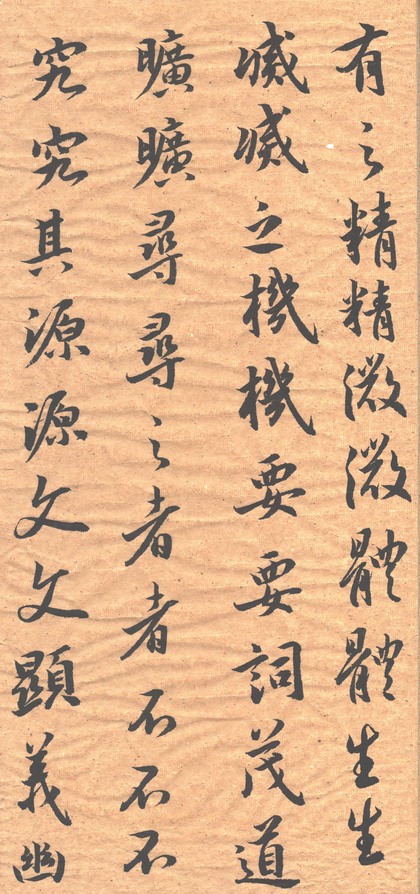 有之精精微微體體生生
滅滅之機機要要詞茂道
曠曠尋尋之者者不不不
究究其源源文文顯義幽